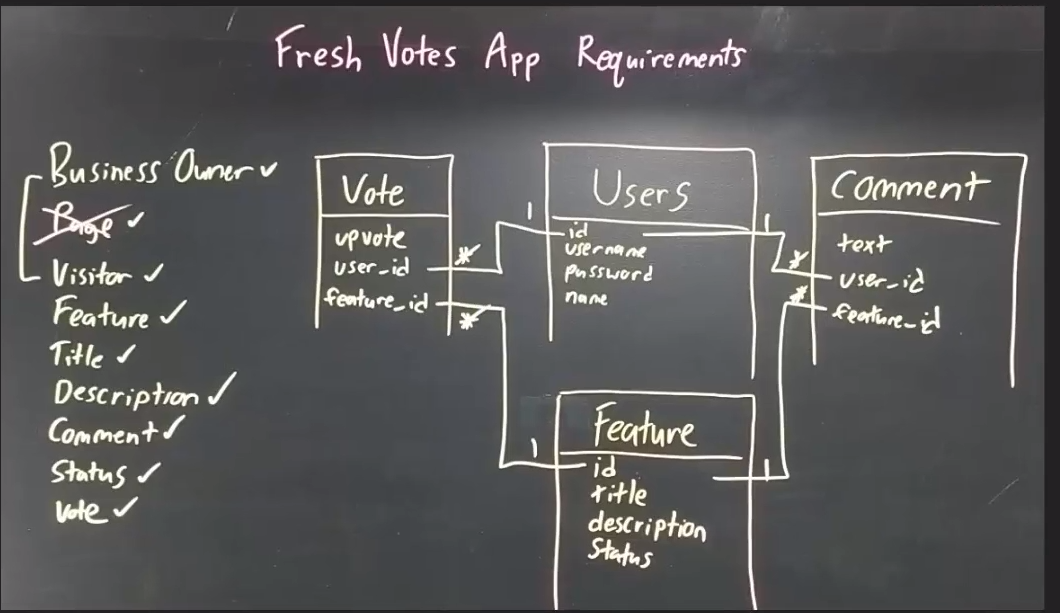 Fresh Votes App Requirements
Business Owner ✓
Page ✓
Visitor ✓
Feature ✓
Title ✓
Description ✓
Comment ✓
Status ✓
Vote ✓
Vote
upvote
user_id *
feature_id *
1 Users 1
id
username
password
name
Comment
text
* user_id
* feature_id
Feature
1 id 1
title
description
Status